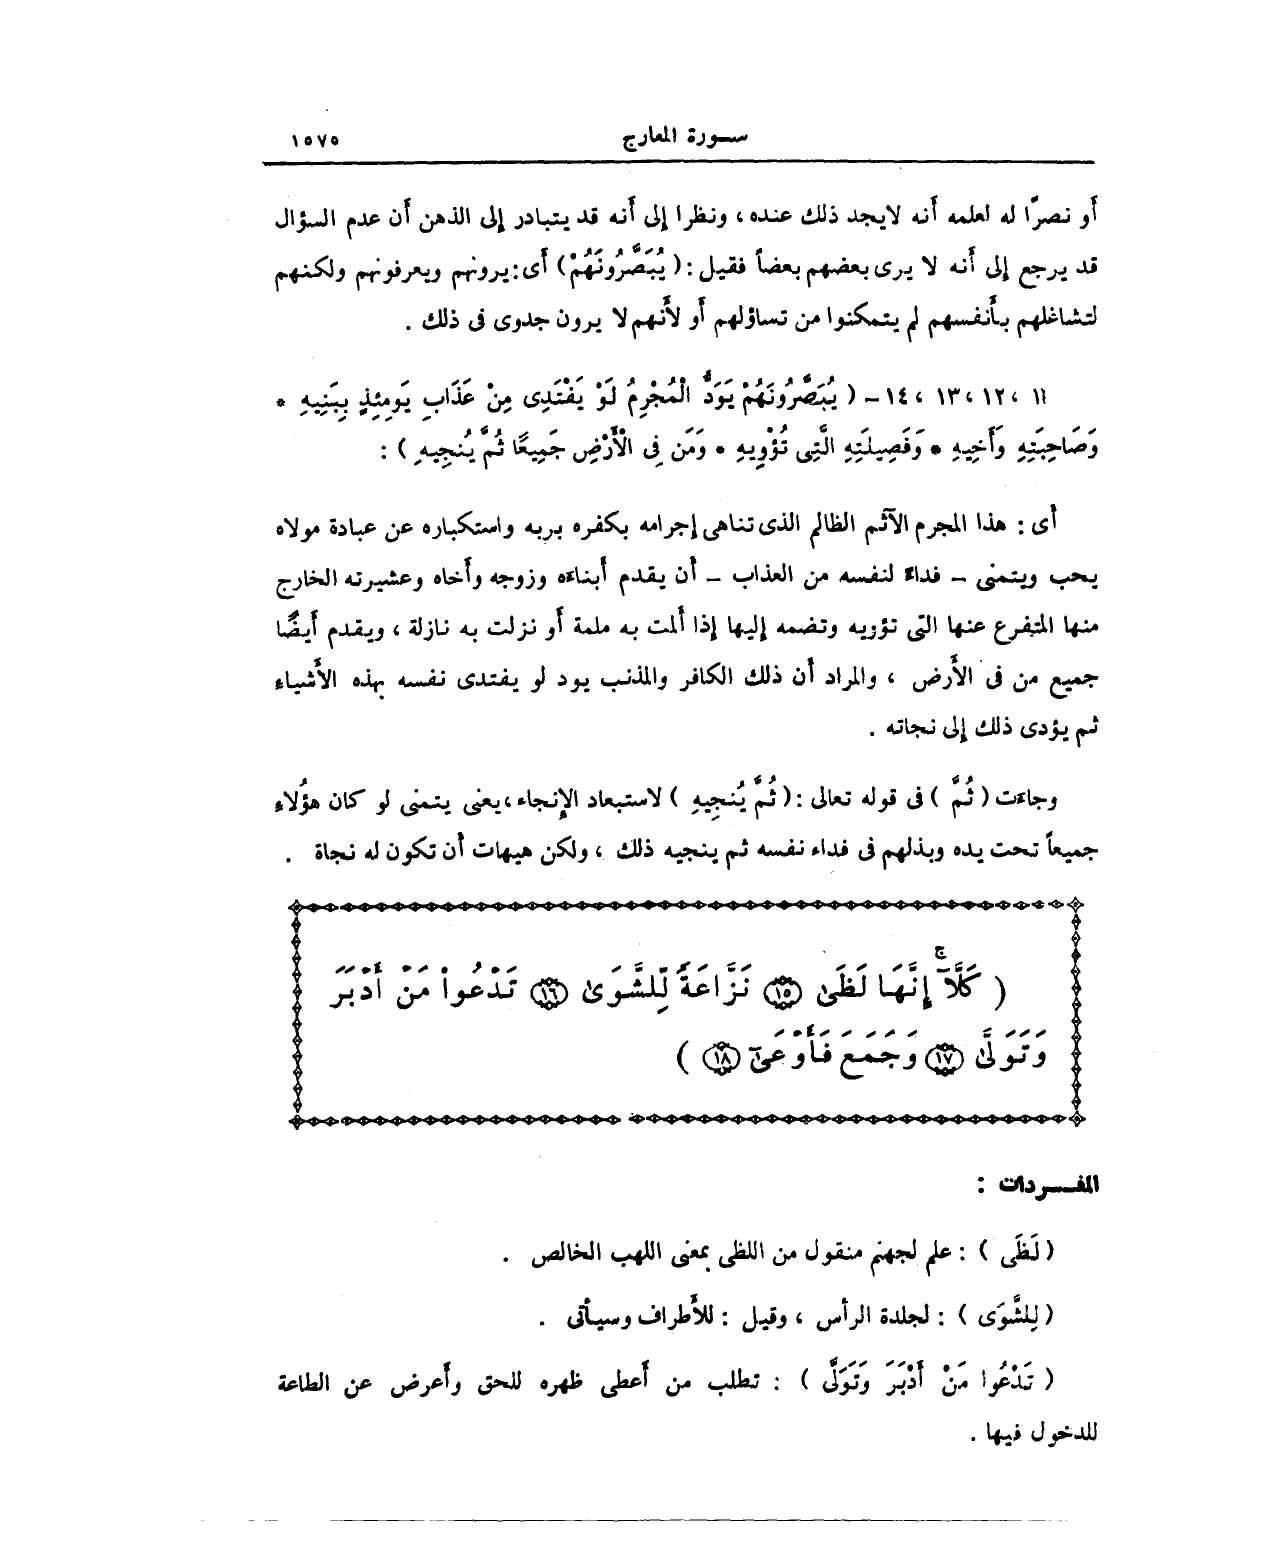 سورة المعارج ١٥٧٥
أو نصرًا له لعلمه أنه لايجد ذلك عنده ، ونظرا إلى أنه قد يتبادر إلى الذهن أن عدم السؤال
قد يرجع إلى أنه لا يرى بعضهم بعضاً فقيل : ( يُبَصَّرُونَهُمْ ) أى : يرونهم ويعرفونهم ولكنهم
لتشاغلهم بأنفسهم لم يتمكنوا من تساؤلهم أو لأنهم لا يرون جدوى فى ذلك .
١١ ، ١٢ ، ١٣ ، ١٤ – ( يُبَصَّرُونَهُمْ يَوَدُّ الْمُجْرِمُ لَوْ يَفْتَدِى مِنْ عَذَابِ يَوْمِئِذٍ بِبَنِيهِ *
وَصَاحِبَتِهِ وَأَخِيهِ * وَفَصِيلَتِهِ الَّتِى تُؤْوِيهِ * وَمَن فِى الْأَرْضِ جَمِيعًا ثُمَّ يُنجِيهِ ) :
أى : هذا المجرم الآثم الظالم الذى تناهى إجرامه بكفره بربه واستكباره عن عبادة مولاه
يحب ويتمنى – فداءً لنفسه من العذاب – أن يقدم أبناءه وزوجه وأخاه وعشيرته الخارج
منها المتفرع عنها التى تؤويه وتضمه إليها إذا ألمت به ملمة أو نزلت به نازلة ، ويقدم أيضًا
جميع من فى الأرض ، والمراد أن ذلك الكافر والمذنب يود لو يفتدى نفسه بهذه الأشياء
ثم يؤدى ذلك إلى نجاته .
وجاءت ( ثُمَّ ) فى قوله تعالى : ( ثُمَّ يُنجِيهِ ) لاستبعاد الإنجاء ، يعنى يتمنى لو كان هؤلاء
جميعاً تحت يده وبذلهم فى فداء نفسه ثم ينجيه ذلك ، ولكن هيهات أن تكون له نجاة .
( كَلَّآ ۚ إِنَّهَا لَظَىٰ ١٥ نَزَّاعَةً لِّلشَّوَىٰ ١٦ تَدْعُوا۟ مَنْ أَدْبَرَ
وَتَوَلَّىٰ ١٧ وَجَمَعَ فَأَوْعَىٰٓ ١٨ )
المفــردات :
( لَظَى ) : علم لجهنم منقول من اللظى بمعنى اللهب الخالص .
( لِلشَّوَى ) : لجلدة الرأس ، وقيل : للأطراف وسيأتى .
( تَدْعُوا مَنْ أَدْبَرَ وَتَوَلَّى ) : تطلب من أعطى ظهره للحق وأعرض عن الطاعة
للدخول فيها .